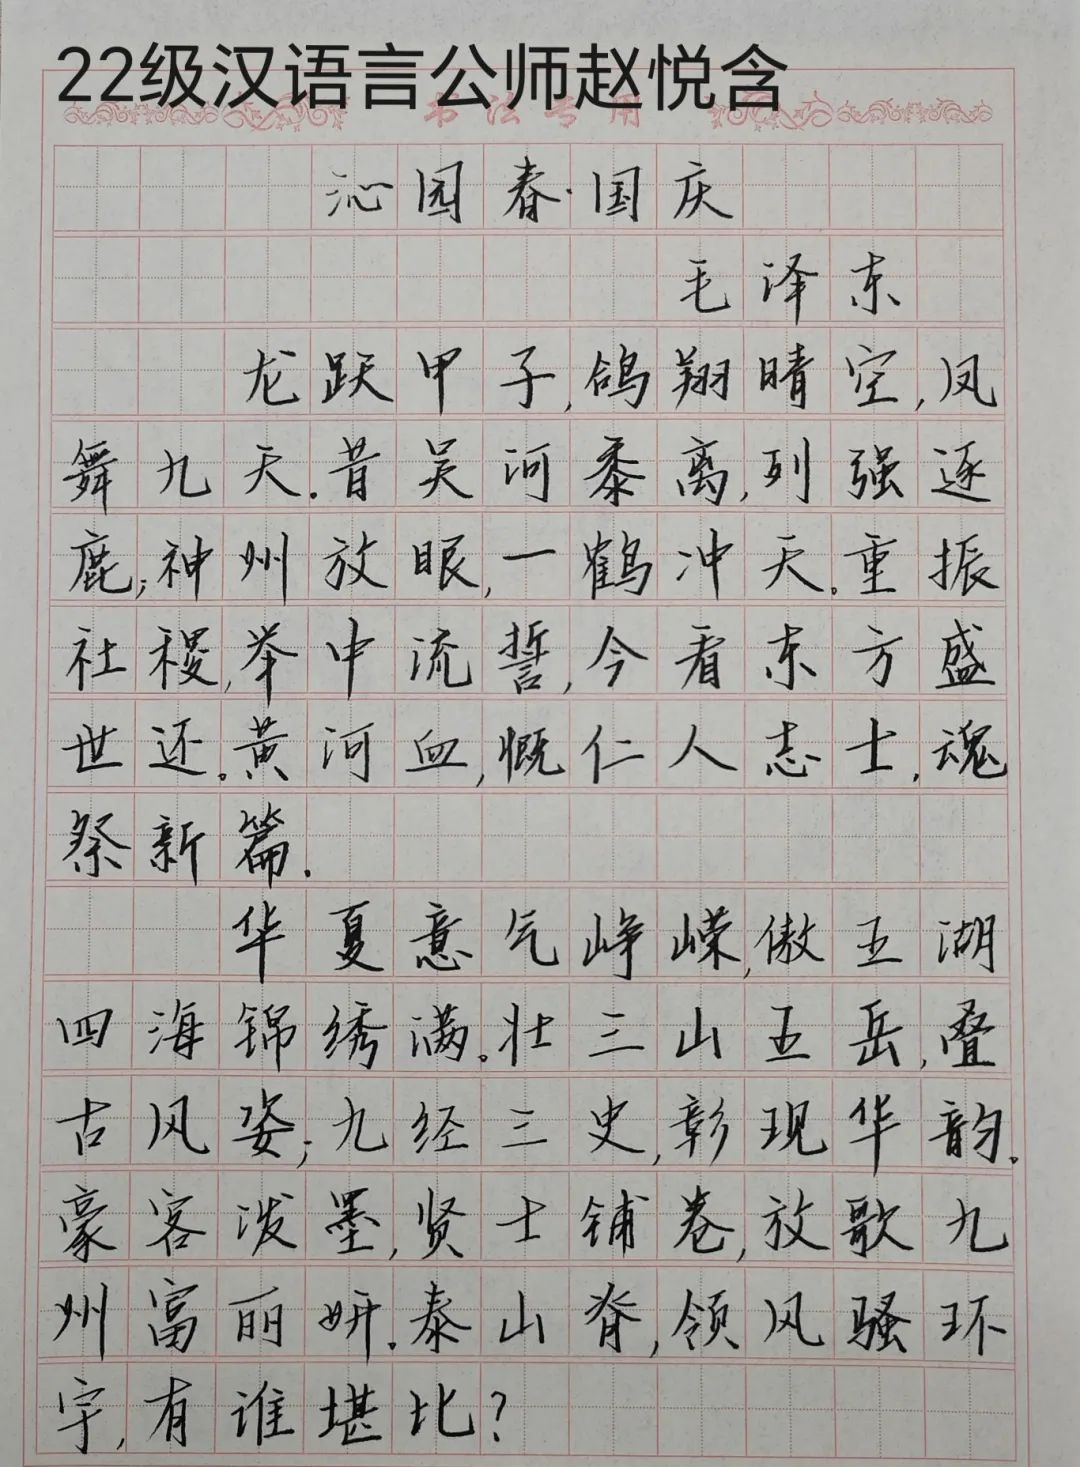 22级汉语言公师赵悦含
书法专用
沁园春·国庆
毛泽东
龙跃甲子,鸽翔晴空,凤
舞九天.昔吴河黍离,列强逐
鹿;神州放眼,一鹤冲天.重振
社稷,举中流誓,今看东方盛
世还.黄河血,慨仁人志士,魂
祭新篇.
华夏意气峥嵘,傲五湖
四海锦绣满.壮三山五岳,叠
古风姿;九经三史,彰现华韵.
豪客泼墨,贤士铺卷,放歌九
州富丽妍.泰山脊,领风骚环
宇,有谁堪比?